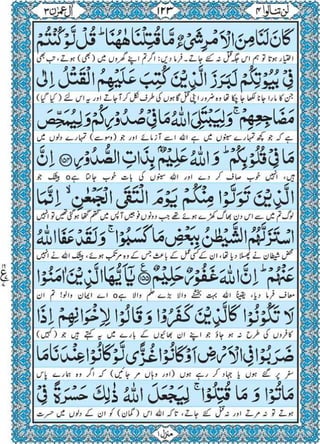 لن تنالوا ۴ ۱۲۳ اٰل عمرٰن ۳
كَانَ لَنَا مِنَ الْاَمْرِ شَیْءٌ مَّا قُتِلْنَا هٰهُنَا ؕ قُلْ لَّوْ كُنْتُمْ
اختیار ہوتا تو ہم اس جگہ قتل نہ کئے جاتے۔ فرما دیں: اگر تم اپنے گھروں میں (بھی) ہوتے، تب بھی
فِیْ بُیُوْتِكُمْ لَبَرَزَ الَّذِیْنَ كُتِبَ عَلَیْهِمُ الْقَتْلُ اِلٰی
جن کا مارا جانا لکھا جا چکا تھا وہ ضرور اپنی قتل گاہوں کی طرف نکل کر آ جاتے اور یہ اس لئے (کیا گیا)
مَضَاجِعِهِمْ ۚ وَ لِیَبْتَلِیَ اللّٰهُ مَا فِیْ صُدُوْرِكُمْ وَ لِیُمَحِّصَ
ہے کہ جو کچھ تمہارے سینوں میں ہے اللہ اسے آزمائے اور جو (وسوسے) تمہارے دلوں میں
مَا فِیْ قُلُوْبِكُمْ ؕ وَ اللّٰهُ عَلِیْمٌۢ بِذَاتِ الصُّدُوْرِ ﴿۱۵۴﴾ اِنَّ
ہیں، انہیں خوب صاف کر دے اور اللہ سینوں کی بات خوب جانتا ہے۵ بیشک جو
الَّذِیْنَ تَوَلَّوْا مِنْكُمْ یَوْمَ الْتَقَی الْجَمْعٰنِ ۙ اِنَّمَا
لوگ تم میں سے اس دن بھاگ کھڑے ہوئے تھے جب دونوں فوجیں آپس میں گتھم گتھا ہو گئی تھیں تو انہیں
اسْتَزَلَّهُمُ الشَّیْطٰنُ بِبَعْضِ مَا كَسَبُوْا ۚ وَ لَقَدْ عَفَا اللّٰهُ
محض شیطان نے پھسلا دیا تھا، ان کے کسی عمل کے باعث جس کے وہ مرتکب ہوئے، بیشک اللہ نے انہیں
عَنْهُمْ ؕ اِنَّ اللّٰهَ غَفُوْرٌ حَلِیْمٌ ﴿۱۵۵﴾ یٰۤاَیُّهَا الَّذِیْنَ اٰمَنُوْا
معاف فرما دیا، یقیناً اللہ بہت بخشنے والا بڑے حلم والا ہے۵ اے ایمان والو! تم ان
لَا تَكُوْنُوْا كَالَّذِیْنَ كَفَرُوْا وَ قَالُوْا لِاِخْوَانِهِمْ اِذَا
کافروں کی طرح نہ ہو جاؤ جو اپنے ان بھائیوں کے بارے میں یہ کہتے ہیں جو (کہیں)
ضَرَبُوْا فِی الْاَرْضِ اَوْ كَانُوْا غُزًّی لَّوْ كَانُوْا عِنْدَنَا مَا
سفر پر گئے ہوں یا جہاد کر رہے ہوں (اور وہاں مر جائیں) کہ اگر وہ ہمارے پاس
مَاتُوْا وَ مَا قُتِلُوْا ۚ لِیَجْعَلَ اللّٰهُ ذٰلِكَ حَسْرَةً فِیْ
ہوتے تو نہ مرتے اور نہ قتل کئے جاتے، تاکہ اللہ اس (گمان) کو ان کے دلوں میں حسرت
منزل ۱